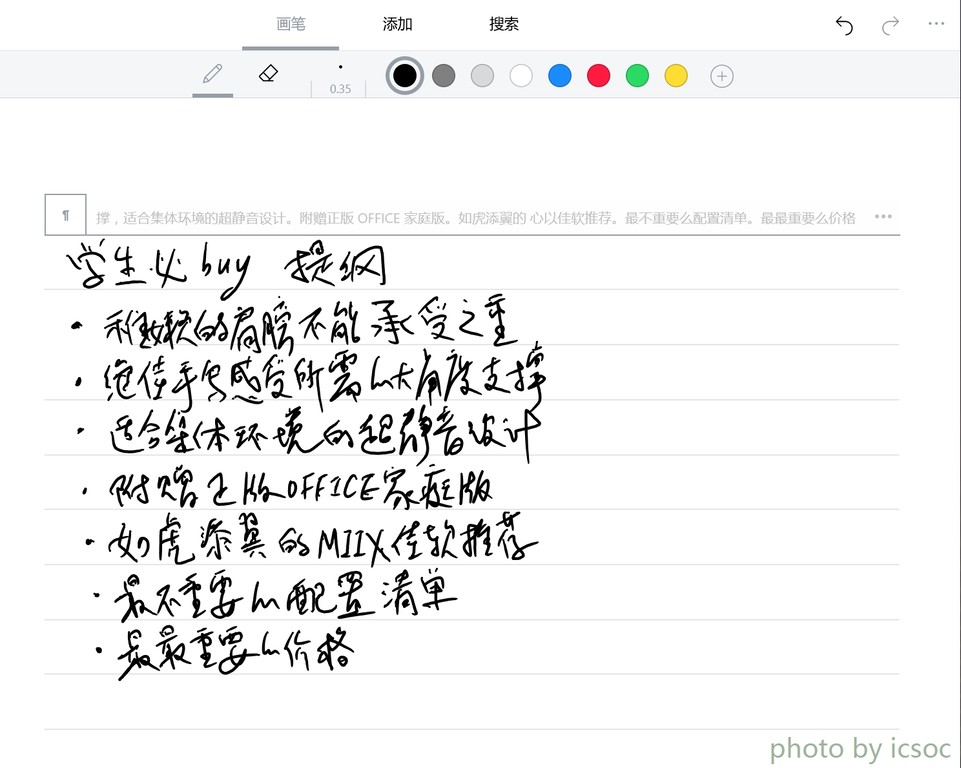 画笔 添加 搜索
0.35
撑，适合集体环境的超静音设计。附赠正版 OFFICE 家庭版。如虎添翼的 心以佳软推荐。最不重要么配置清单。最最重要么价格
学生必buy 提纲
• 稚嫩的肩膀不能承受之重
• 绝佳手写感受所需的大角度支撑
• 适合集体环境的超静音设计
• 附赠正版OFFICE家庭版
• 如虎添翼的MIIX佳软推荐
• 最不重要的配置清单
• 最最重要的价格
photo by icsoc